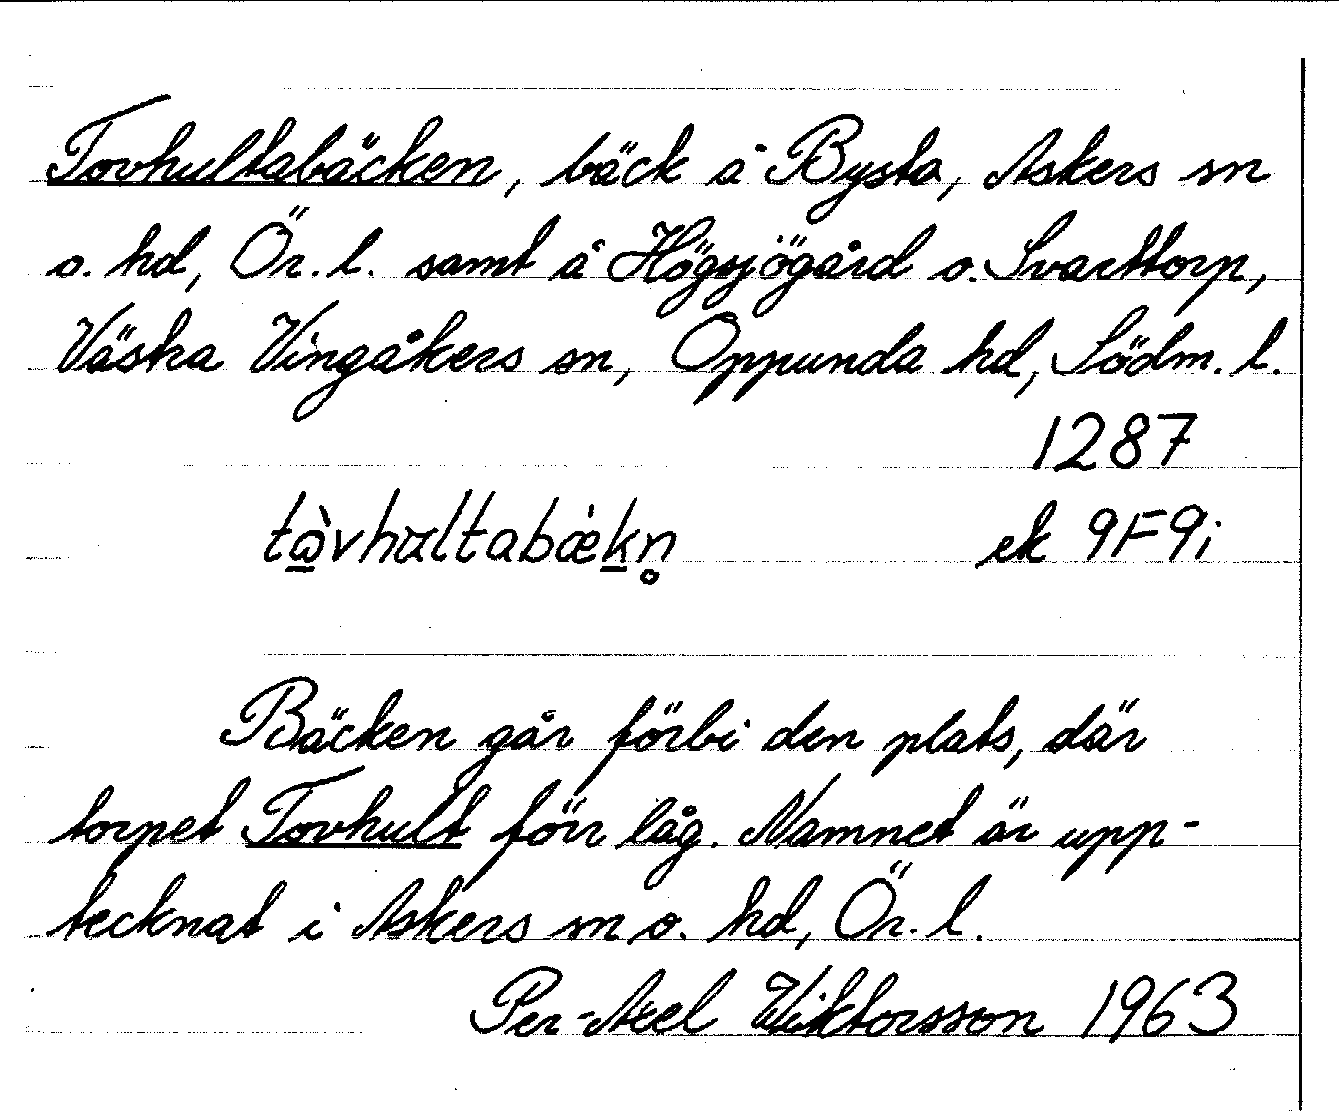 Tovhultabäcken, bäck å Bysta, Askers sn
o. hd, Ör. l. samt å Högsjögård o. Svarttorp,
Västra Vingåkers sn, Oppunda hd, Södm. l.
1287
tòvhultabækn̥ ek 9F9i
Bäcken går förbi den plats, där
torpet Tovhult förr låg. Namnet är upp-
tecknat i Askers sn o. hd, Ör. l.
Per-Axel Wiktorsson 1963